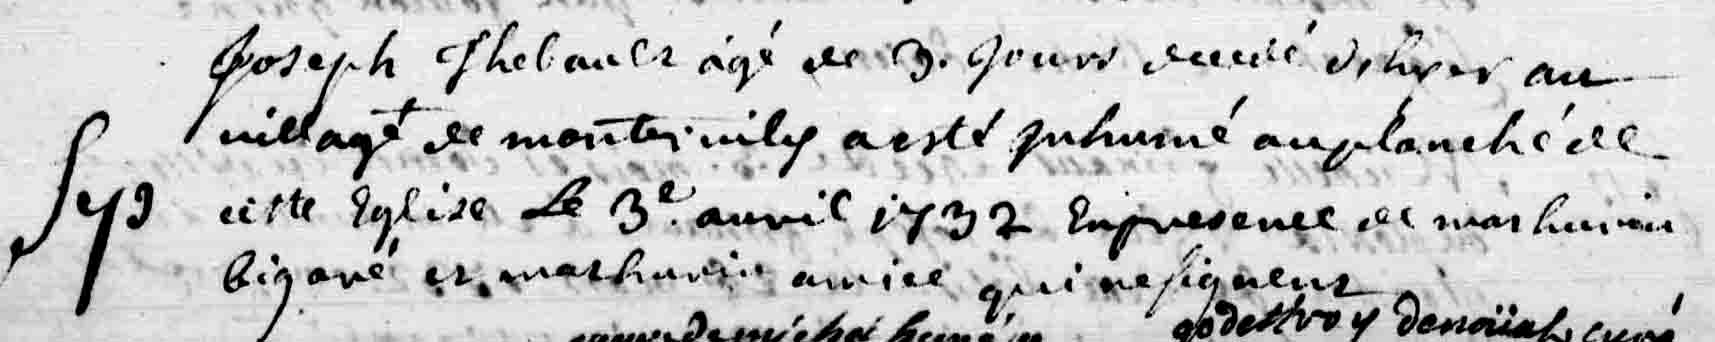 Joseph Thebault agé de 3. jours decedé d'hyer au
village de monteruily a esté Inhumé au planché de
cette Eglise Le 3e. auril 1732 En presence de mathurin
bigaré et mathurin amice qui ne signent